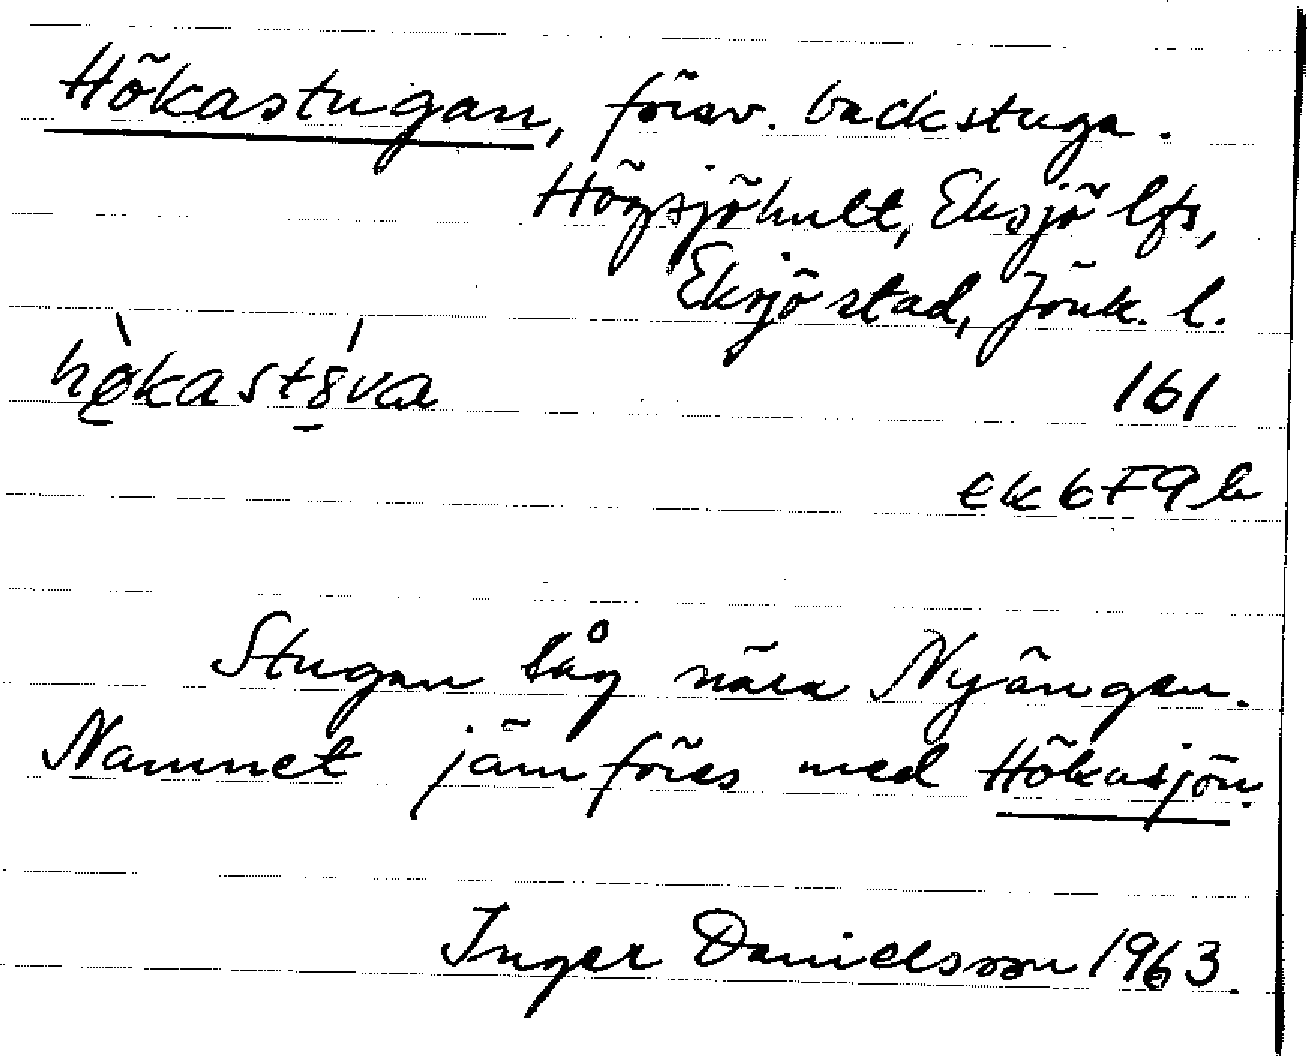 Hökastugan, försv. backstuga.
Högsjöhult, Eksjö lfs,
Eksjö stad, Jönk. l.
hø̀kastȣ́va
161
ek 6F9b
Stugan låg nära Nyängen.
Namnet jämföres med Hökasjön.
Inger Danielsson 1963.